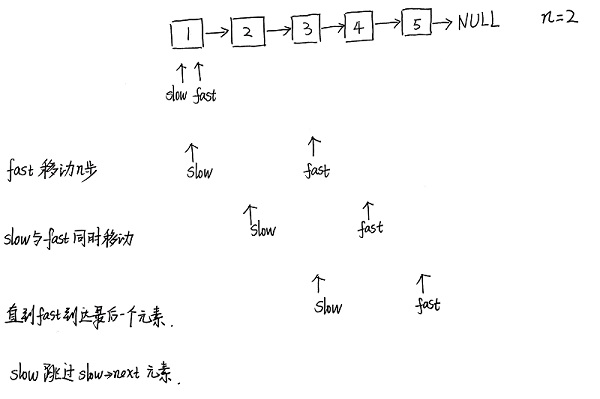 1 → 2 → 3 → 4 → 5 → NULL n=2
slow fast
fast 移动n步 slow fast
slow与fast同时移动 slow fast
直到fast到达最后一个元素. slow fast
slow 跳过 slow→next 元素.